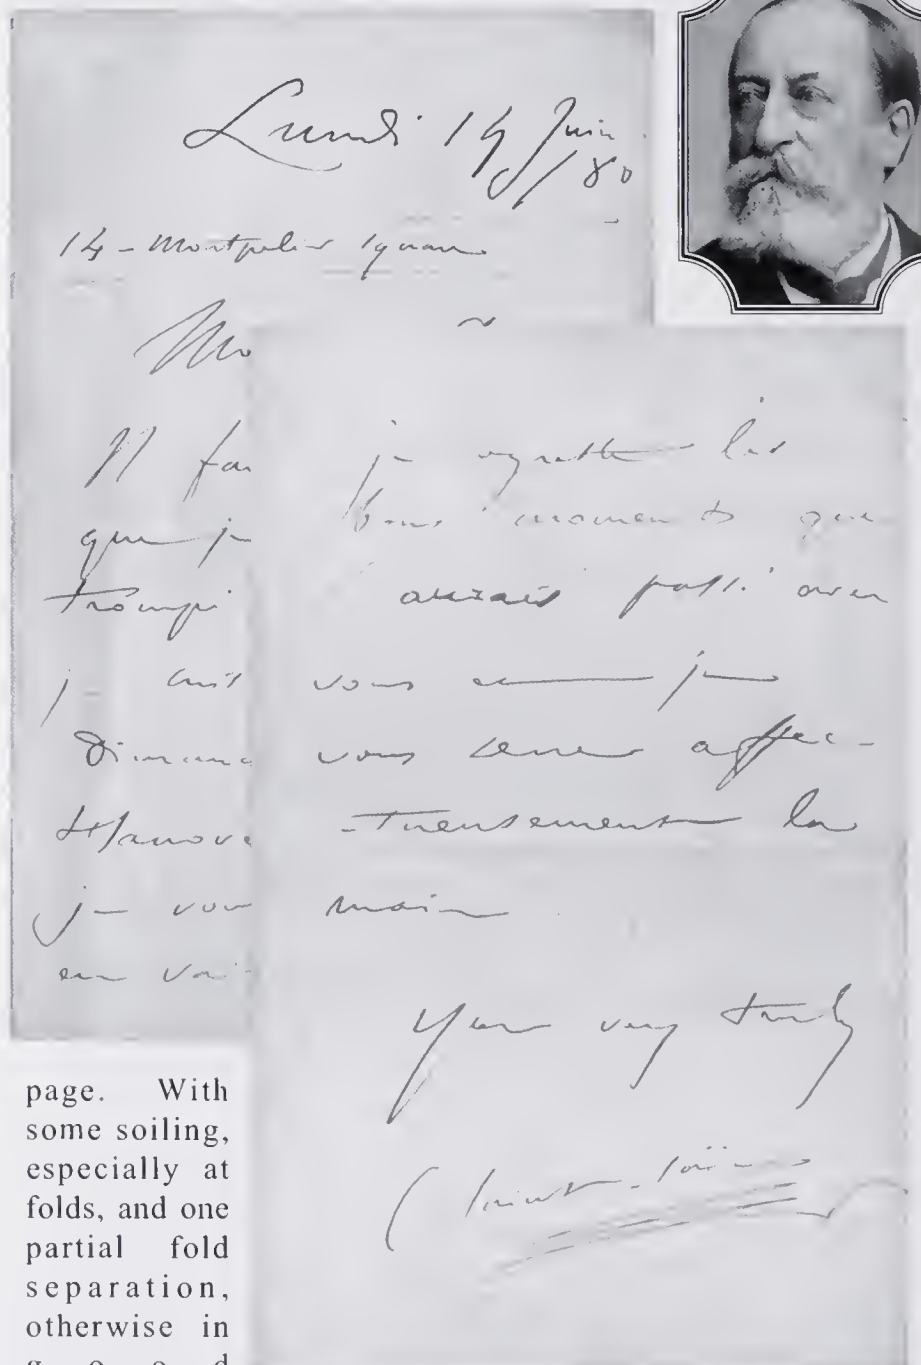 Lundi 14 Juin
/80
14 - Montpelier Square
Mo
Il fau
que je
trompé
je suis
Dimanc
Hanove
je vou
en voi
je regrette les
bons moments que
aurais passé avec
vous et je
vous serre affec-
-tueusement la
main
Yours very truly
C Saint-Saëns
page. With
some soiling,
especially at
folds, and one
partial fold
separation,
otherwise in
g o o d